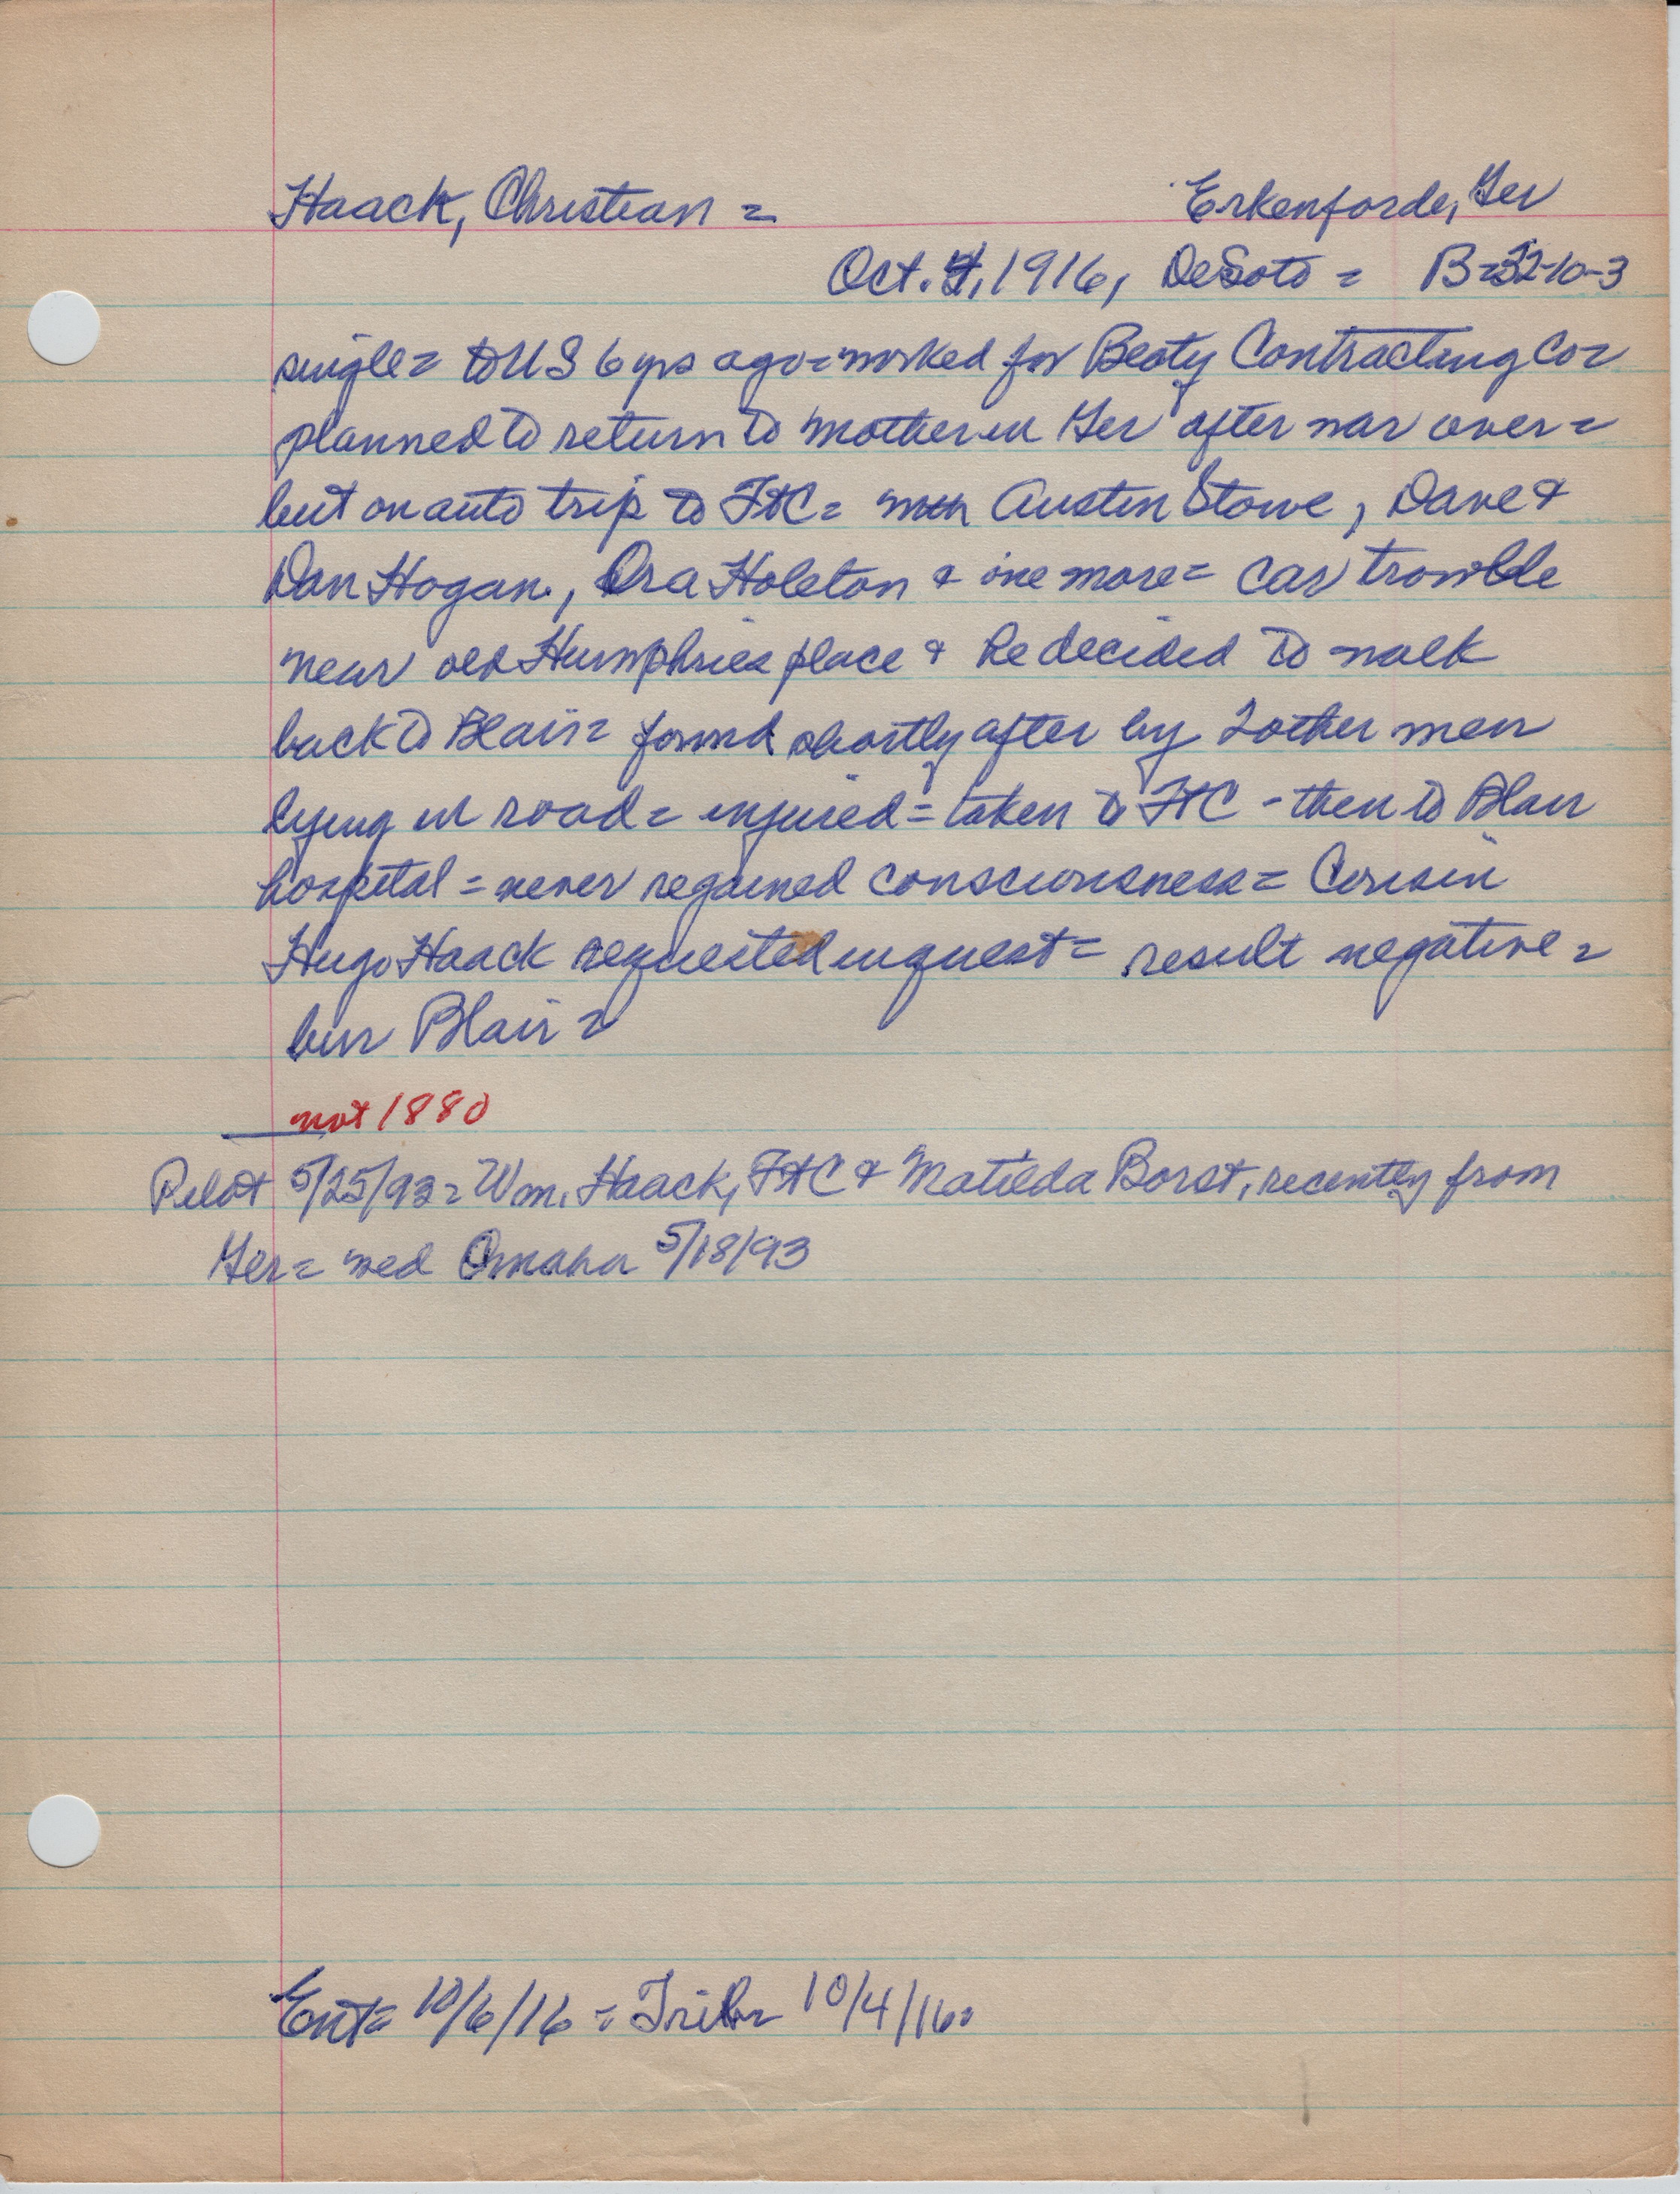 Haack, Christian = Erkenforde, Ger
Oct. 4, 1916, DeSoto = B=32-10-3
single = to US 6 yrs ago = worked for Beaty Contracting Co =
planned to return to mother in Ger after war over =
but on auto trip to FtC = with Austin Stowe, Dave &
Dan Hogan, Ora Holeton & one more = car trouble
near old Humphries place & he decided to walk
back to Blair = found shortly after by 2 other men
lying in road = injured = taken to FtC - then to Blair
hospital = never regained consciousness = Cousin
Hugo Haack requested inquest = result negative =
bur Blair =
not 1880
Pilot 5/25/93 = Wm. Haack, FtC & Matilda Borst, recently from
Ger = wed Omaha 5/18/93
Ent = 10/6/16 = Trib = 10/4/16 =